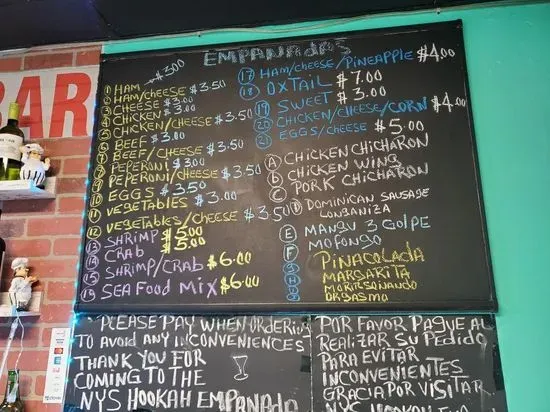 BAR
EMPANADAS
1 HAM $3.00
2 HAM/CHEESE $3.50
3 CHEESE $3.00
4 CHICKEN $3.00
5 CHICKEN/CHEESE $3.50
6 BEEF $3.00
7 BEEF/CHEESE $3.50
8 PEPERONI $3.00
9 PEPERONI/CHEESE $3.50
10 EGGS $3.50
11 VEGETABLES $3.00
12 VEGETABLES/CHEESE $3.50
13 SHRIMP $5.00
14 CRAB $5.00
15 SHRIMP/CRAB $6.00
SEA FOOD MIX $6.00
17 HAM/CHEESE/PINEAPPLE $4.00
18 OXTAIL $7.00
19 SWEET $3.00
20 CHICKEN/CHEESE/CORN $4.00
21 EGGS/CHEESE $5.00
A CHICKEN CHICHARON
B CHICKEN WING
C PORK CHICHARON
D DOMINICAN SAUSAGE
LONGANIZA
E MANGU 3 GOLPE
F MOFONGO
PINACOLADA
MARGARITA
MORIRSONANDO
ORGASMO
PLEASE PAY WHEN ORDERING
TO AVOID ANY INCONVENIENCES
THANK YOU FOR
COMING TO THE
NYS HOOKAH EMPANADA
POR FAVOR PAGUE AL
REALIZAR SU PEDIDO
PARA EVITAR
INCONVENIENTES
GRACIA POR VISITAR
NYS HOOKAH